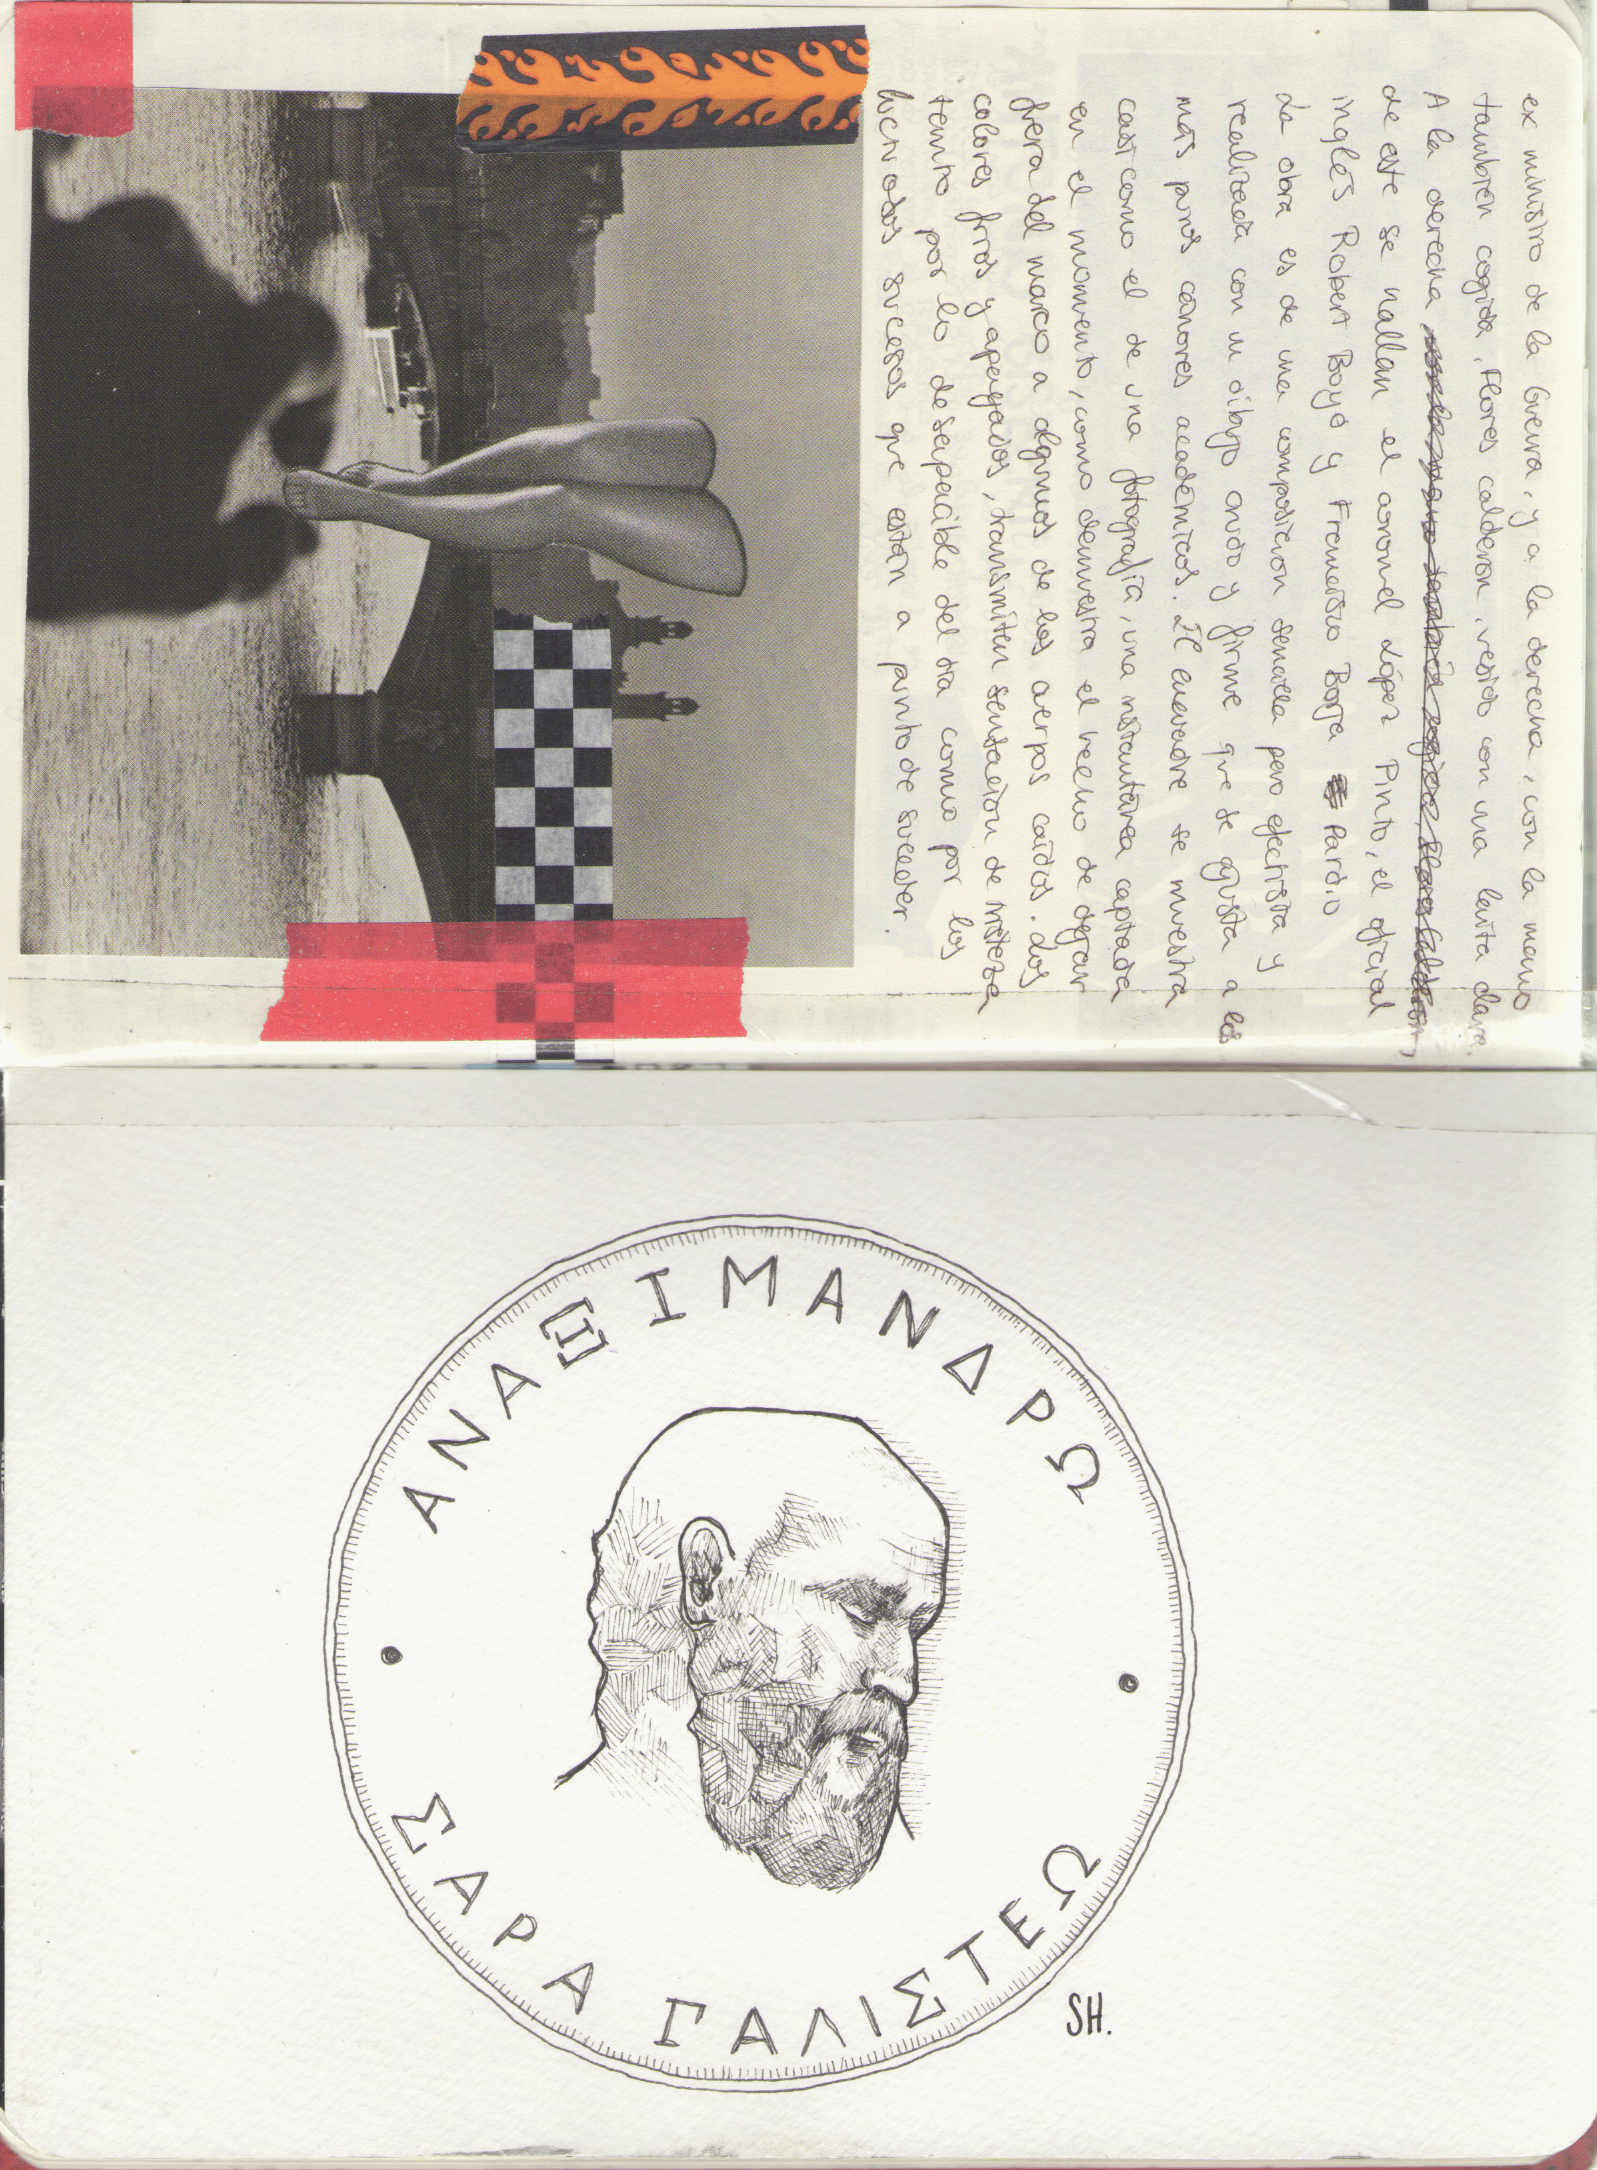 ex ministro de la Guerra, y a la derecha, con la mano
también cogida, Flores calderón, vestido con una levita clara.
A la derecha
de este se hallan el coronel López Pinto, el oficial
inglés Robert Boyd y Francisco Borja Pardio
La obra es de una composición sencilla pero efectista y
realizada con un dibujo crudo y firme que se ajusta a los
más puros cánones académicos. El encuadre se muestra
casi como el de una fotografía, una instantánea captada
en el momento, como demuestra el hecho de dejar
fuera del marco a algunos de los cuerpos caídos. Los
colores fríos y apagados, transmiten sensación de tristeza
tanto por lo desapacible del día como por los
luctuosos sucesos que están a punto de suceder.
ΑΝΑΞΙΜΑΝΔΡΩ
ΣΑΡΑ ΓΑΛΙΣΤΕΩ
SH.